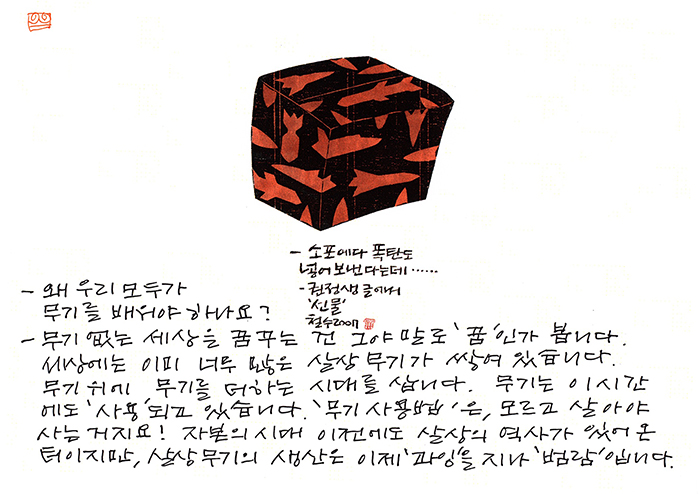 - 소포에다 폭탄도
넣어 보낸다는데 ......
- 권정생 글에서
'선물'
철수2007
- 왜 우리 모두가
무기를 배워야 하나요?
- 무기 없는 세상을 꿈꾸는 건 그야말로 '꿈'인가 봅니다.
세상에는 이미 너무 많은 살상무기가 쌓여 있습니다.
무기 위에 무기를 더하는 시대를 삽니다. 무기는 이 시간
에도 '사용'되고 있습니다. '무기 사용법'은, 모르고 살아야
사는 거지요! 자본의 시대 이전에도 살상의 역사가 있어 온
터이지만, 살상무기의 생산은 이제 '과잉'을 지나 '범람'입니다.